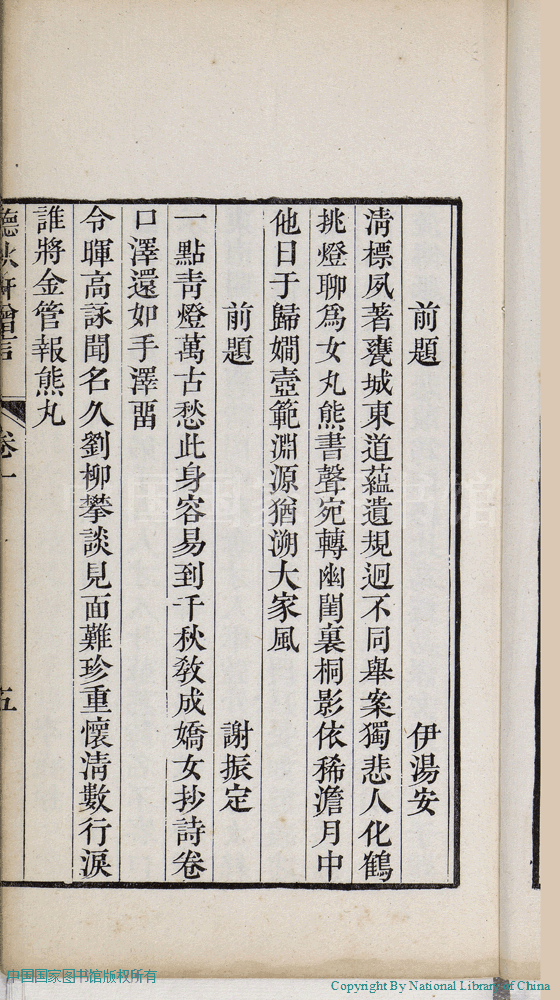 前題　伊湯安
清標夙著甕城東道蘊遺規迥不同舉案獨悲人化鶴
挑燈聊爲女丸熊書聲宛轉幽閨裏桐影依稀澹月中
他日于歸嫺壼範淵源猶溯大家風
前題　謝振定
一點青燈萬古愁此身容易到千秋敎成嬌女抄詩卷
口澤還如手澤畱
令暉高詠聞名久劉柳攀談見面難珍重懷淸數行淚
誰將金管報熊丸
聽秋軒贈言　卷一　五
中国国家图书馆版权所有
Copyright By National Library of China